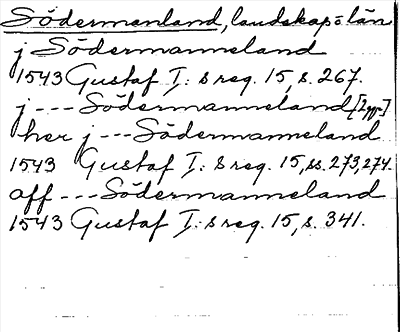 Södermanland, landskap o län
j Södermanneland
1543 Gustaf I: s reg. 15, s. 267.
j --- Södermanneland [2 ggr]
her j --- Södermanneland
1543 Gustaf I: s reg. 15, ss. 273, 274.
aff --- Södermanneland
1543 Gustaf I: s reg. 15, s. 341.